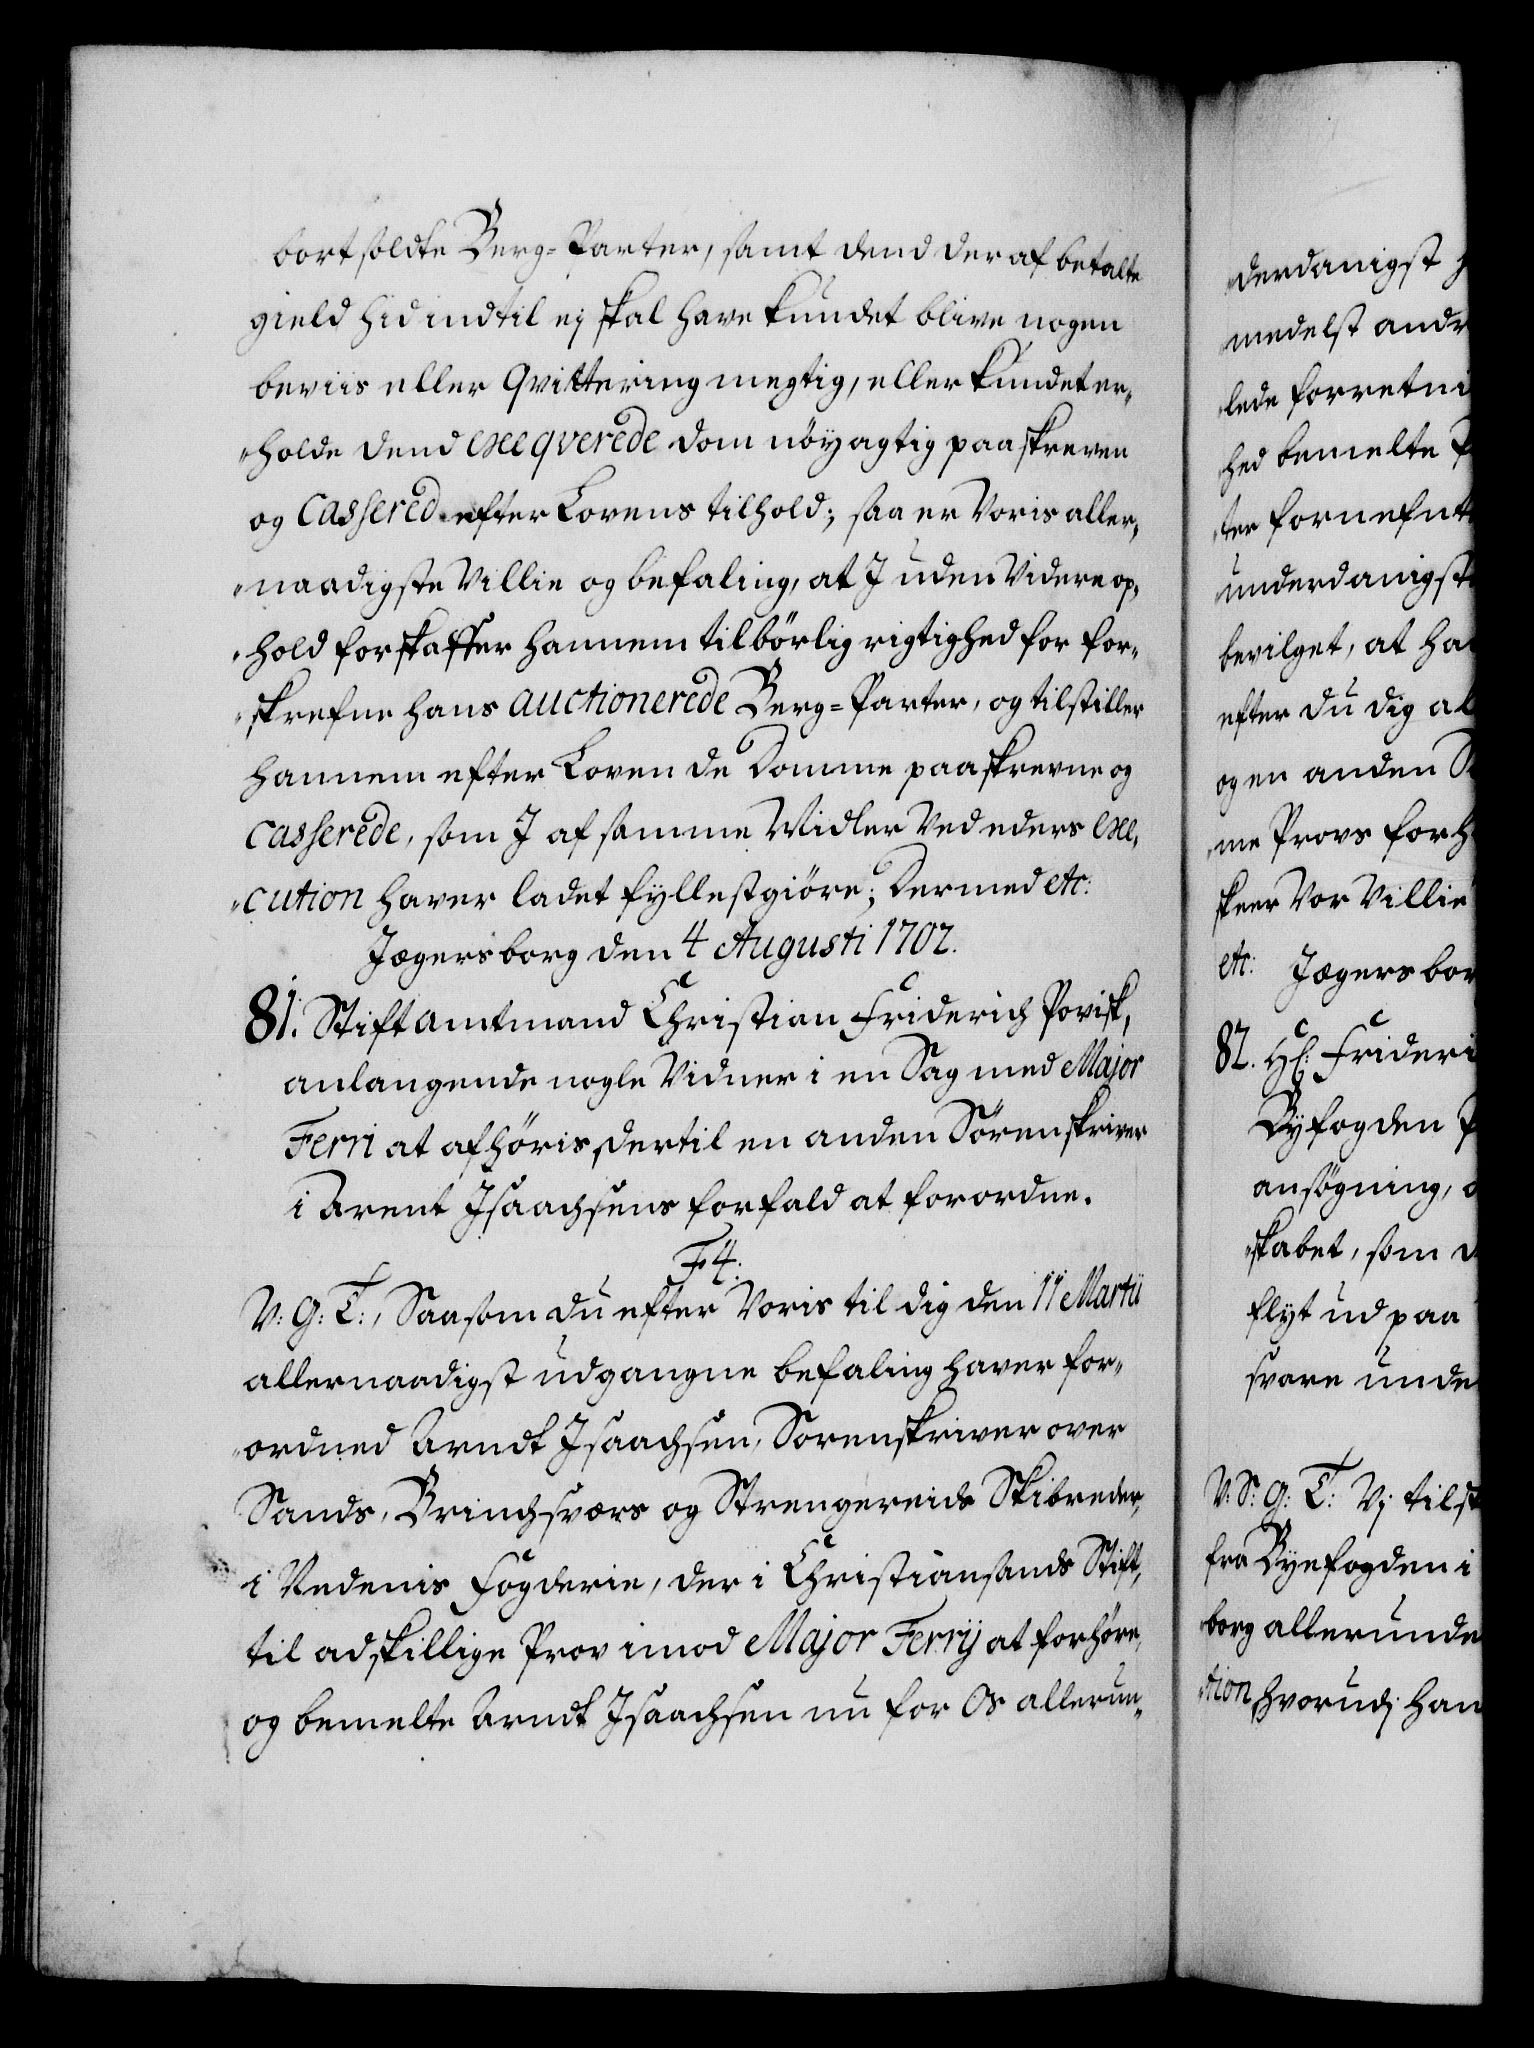 bortsoldte Berg=Parter, samt dend deraf betalte
gield hid indtil ej skal have kundet blive nogen
beviis eller Qvittering megtig, eller kundet er„
„holde dend exeqverede dom nöyagtig paaskreven
og Cassered efter Lovens tilhold; saa er Voris aller„
„naadigste Villie og befaling, at I uden Videre op„
„hold forskaffer hannem tilbörlig rigtighed for for„
„skrefne hans auctionerede Berg=Parter, og tilstiller
hannem efter Loven de Domme paaskrevne og
Casserede, som I af samme Midler Ved eders exe„
„cution haver ladet fyllestgiöre; Dermed etc:
Jægersborg den 4 Augusti 1702.
81. Stiftamtmand Christian Friderich Povisk,
anlangende nogle Vidner i en Sag med Major
Ferri at afhöris, dertil en anden Sörenskriver
i Arent Isaachsens forfald at forordne.
F4:
V: G: T:, Saasom du efter Voris til dig den 11 Martii
allernaadigst udgangne befaling haver for„
„ordned Arndt Isaachsen, Sorenskriver over
Sands, Brinchsværs og Strengereids Skibreder,
i Nedenis fogderie, der i Christiansands Stift,
til adskillige Prov imod Major Ferrij at forhöre,
og bemelte Arndt Isaachsen nu for Os allerun„
„derdanigst
medelst andr
„lede forretni
hed bemelte
„ter fornefnt
underdanigst
bevilget, at ha
efter du dig al
og en anden
„me Provs forh
skeer Vor Villie
etc: Jægersbor
82. Hl: Frideri
Byfogden
ansøgning,
„skabet, som
flyt ud paa
svare unde
V: S: G: T: Vj tilst
fra Byefogden i
„borg allerunde
„tion, hvorudj han